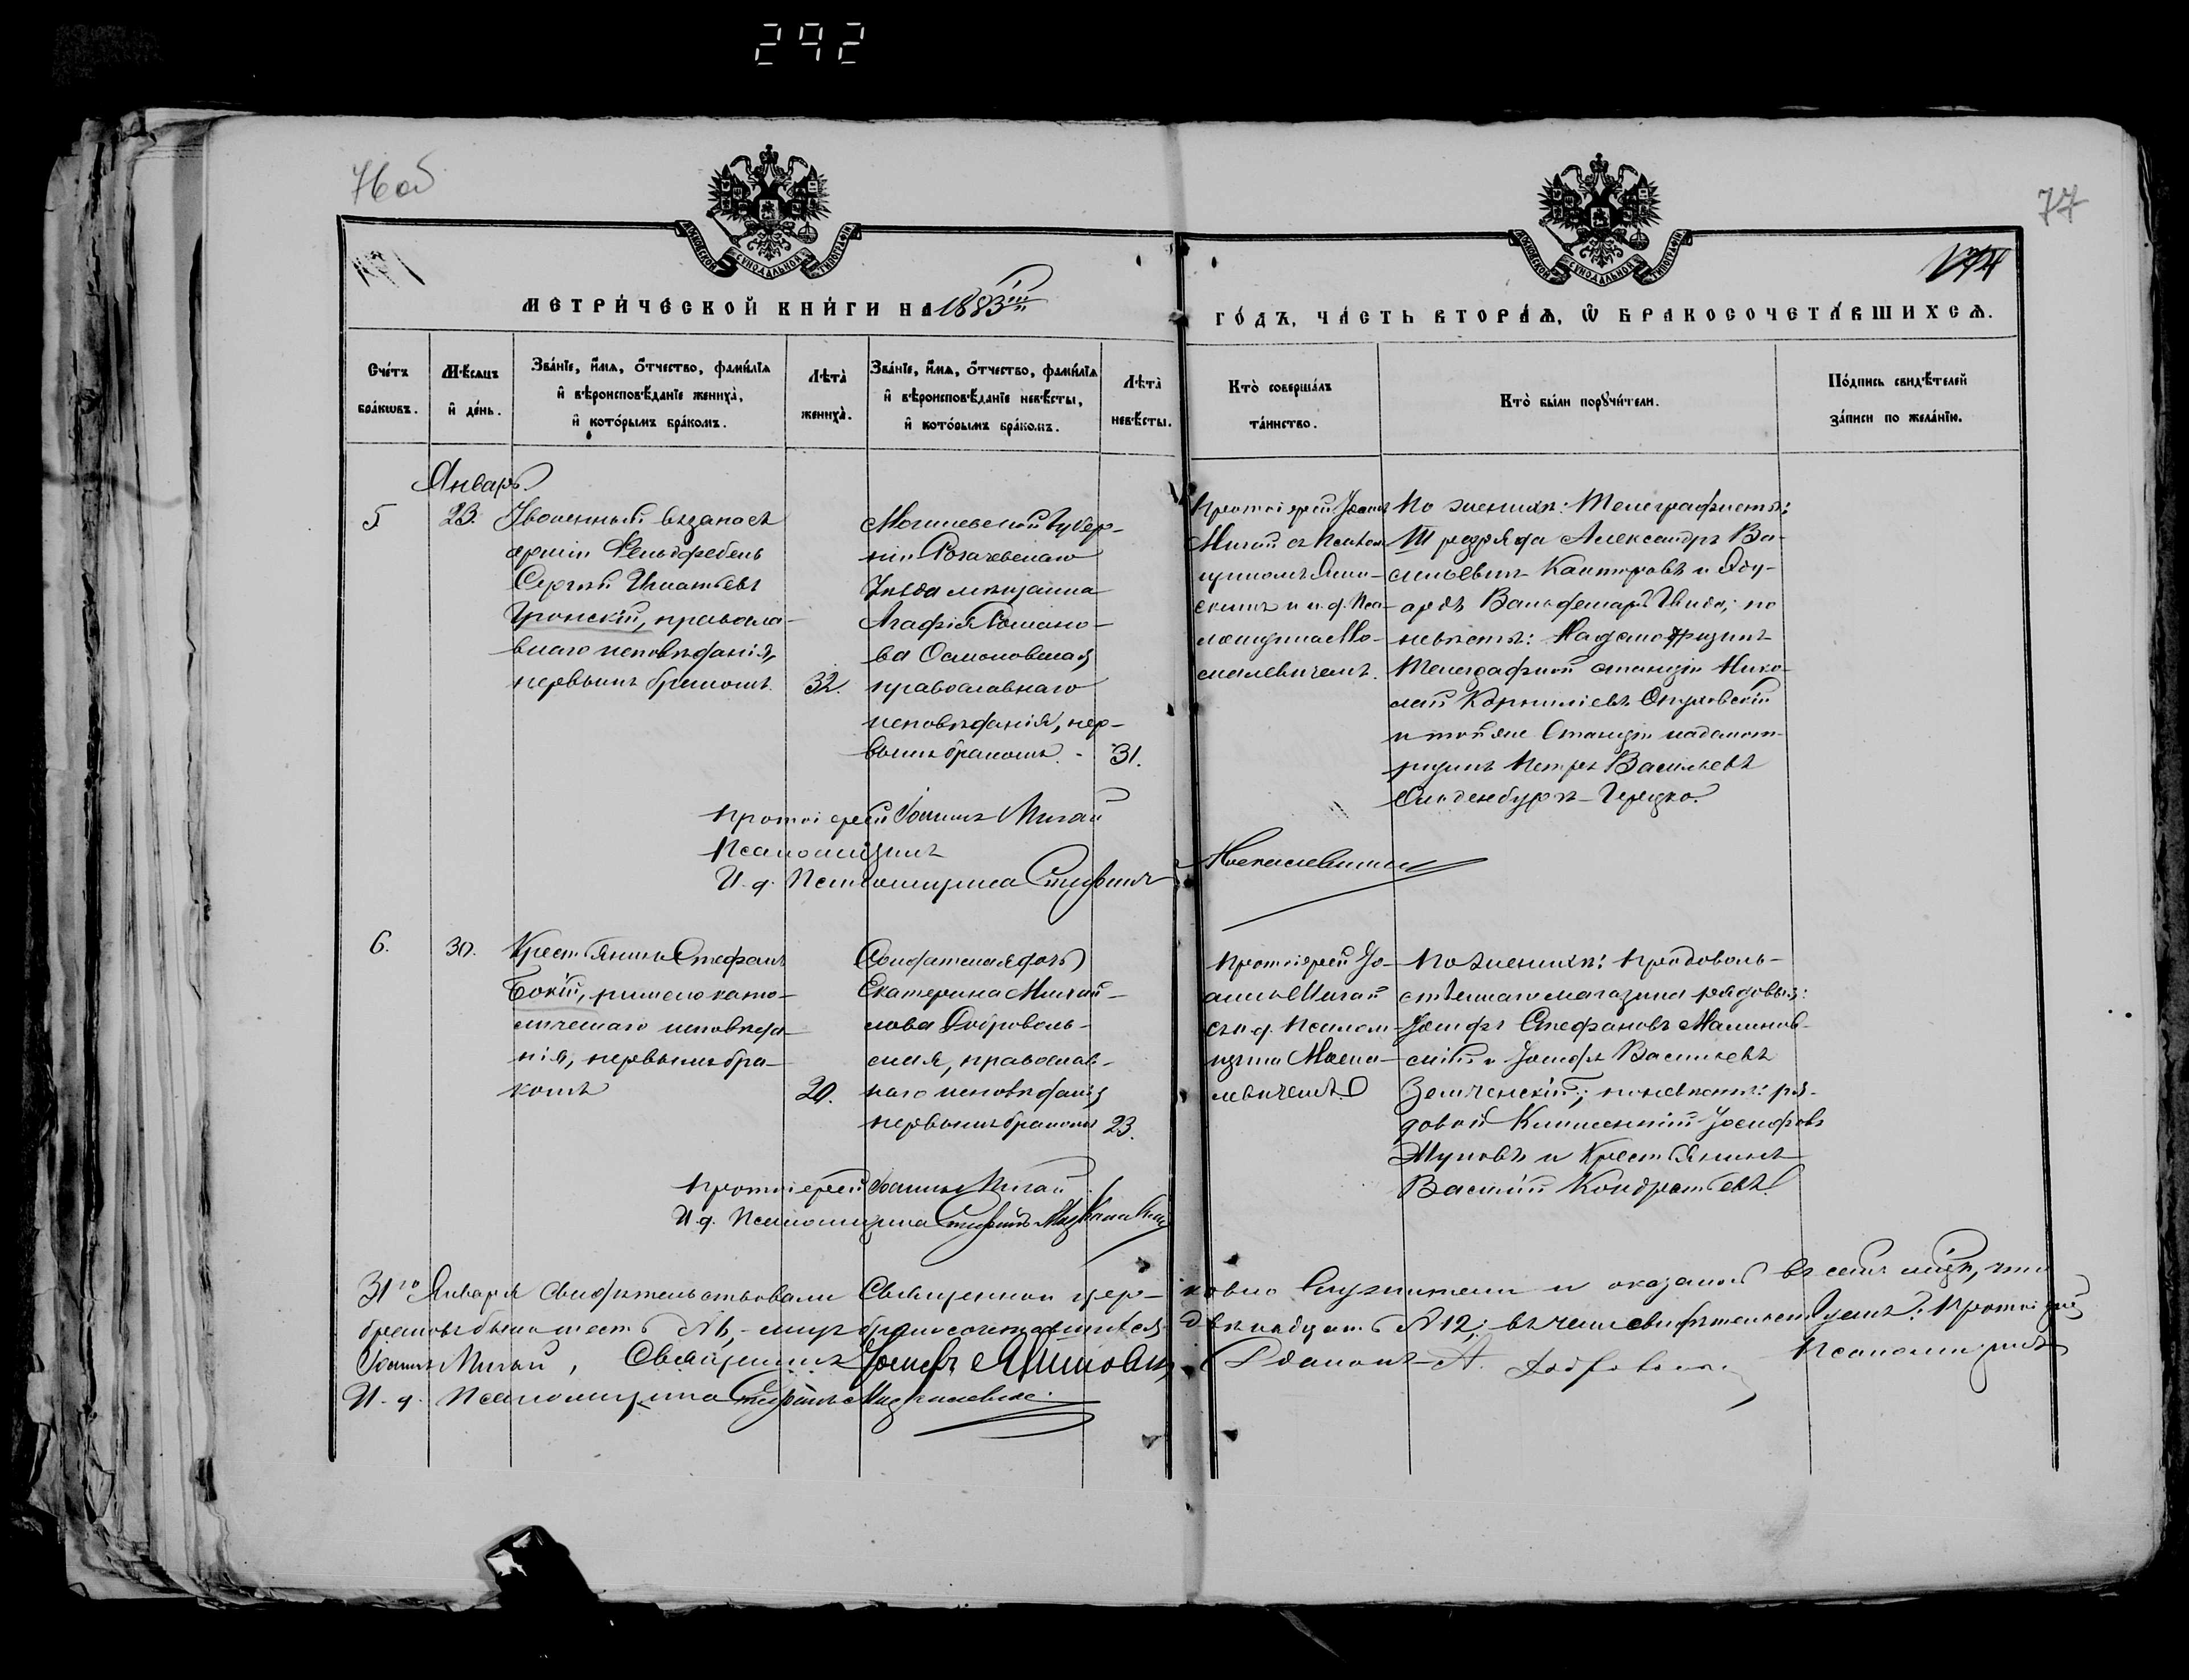 292
76об
77
174
МОСКОВСКОЙ СѴНОДАЛЬНОЙ ТИПОГРАФІИ
МОСКОВСКОЙ СѴНОДАЛЬНОЙ ТИПОГРАФІИ
МЕТРИ́ЧЕСКОЙ КНИ́ГИ НА 1883й
ГО́ДЪ, ЧА́СТЬ ВТОРА́Ѧ, Ѡ БРАКОСОЧЕТА́ВШИХСѦ.
Сче́тъ
бра́кωвъ.
Мѣ́сѧцъ
и҆ де́нь.
Зва́нїе, и҆́мѧ, о҆́тчество, фами́лїѧ
и҆ вѣроисповѣ́данїе жениха̀,
и҆ кото́рымъ бра́комъ.
Лѣта̀
жениха̀.
Зва́нїе, и҆́мѧ, о҆́тчество, фами́лїѧ
и҆ вѣроисповѣ́данїе невѣ́сты,
и҆ кото́рымъ бра́комъ.
Лѣта̀
невѣ́сты.
Кто̀ соверша́лъ
та́инство.
Кто̀ бы́ли порꙋчи́тели.
По́дпись свидѣ́телей
за́писи по жела́нїю.
Январь
5
23.
Уволенный въ запасъ
арміи Фельдфебель
Сергѣй Игнатьевъ
Гронскій, правосла-
внаго исповѣданія,
первымъ бракомъ.
32.
Могилевской Губер-
ніи Рогачевскаго
Уѣзда мѣщанка
Агафія Романо-
ва Осмоловская
православнаго
исповѣданія, пер-
вымъ бракомъ.
31.
Протоіерей Іоаннъ
Мигай съ Псалом-
щикомъ
и и. д. Пса-
ломщика Мо-
скалевичемъ.
По женихѣ: Телеграфисты:
III разряда Александръ Ва-
сильевичъ и Эду-
ардъ Вальдемаръ по
невѣстѣ: Надсмотрщикъ
Телеграфной станціи Нико-
лай Корниліевъ
и той же Станціи надсмот-
рщикъ Петръ Васильевъ
Протоіерей Іоаннъ Мигай
Псаломщикъ
И. д. Псаломщика Стефанъ
Москалевичъ
6.
30.
Крестьянинъ Стефанъ
Бокій, римско като-
лическаго исповѣда-
нія, первымъ бра-
комъ
29.
Солдатская дочь
Екатерина Михай-
лова Доброволь-
ская, православ-
наго исповѣданія
первымъ бракомъ
23.
Протоіерей Іо-
аннъ Мигай
съ и. д. Псалом-
щика Моска-
левичемъ.
По женихѣ: Продоволь-
ственнаго магазина рядовые:
Іосифъ Стефановъ Малинов-
скій и Іосифъ Васильевъ
Земченскій; по невѣстѣ: ря-
довой Іосифовъ
Жуковъ и Крестьянинъ
Василій Кондратьевъ.
Протоіерей Іоаннъ Мигай
И. д. Псаломщика Стефанъ Москалевичъ
31го Января свидѣтельствовали Священно цер-
ковно служители и оказалось въ семъ мѣсяцѣ, что
браковъ было шесть № 6, – лицъ бракосочетавшихся
двѣнадцать № 12; въ чемъ свидѣтельствуемъ: Протоіерей
Іоаннъ Мигай, Священникъ Іосифъ
Діаконъ А. Псаломщикъ
И. д. Псаломщика Стефанъ Москалевичъ.